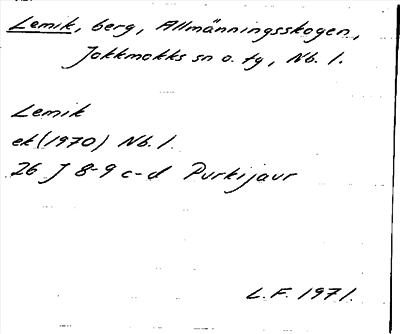 Lemik, berg, Allmänningsskogen,
Jokkmokks sn o. tg, Nb. l.
Lemik
ek (1970) Nb. l.
26 J 8-9 c-d Purkijaur
L.F. 1971.